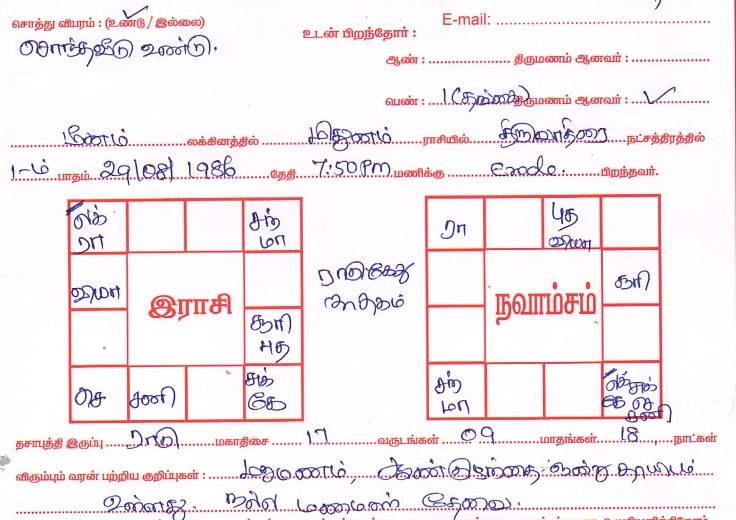 சொத்து விபரம் : (உண்டு / இல்லை)
சொந்தவீடு உண்டு.
உடன் பிறந்தோர் :
E-mail:
ஆண் : திருமணம் ஆனவர் :
பெண் : 1 (தங்கை) திருமணம் ஆனவர் : ✓
மீனம் லக்கினத்தில் மிதுனம் ராசியில் திருவாதிரை நட்சத்திரத்தில்
1-ம் பாதம். 29/08/1986 தேதி 7:50 Pm மணிக்கு Erode. பிறந்தவர்.
லக் ரா
சந் மா
வியா
சூரி புத
செ
சனி
சுக் கே
இராசி
ராகு கேது
ஜாதகம்
ரா
புத வியா
சூரி
சந் மா
லக் சுக் கே செ சனி
நவாம்சம்
தசாபுத்தி இருப்பு ராகு மகாதிசை 17 வருடங்கள் 09 மாதங்கள் 18 நாட்கள்
விரும்பும் வரன் பற்றிய குறிப்புகள் : மறுமணம், ஆண் குழந்தை ஒன்று
உள்ளது. நல்ல மணமகன் தேவை.